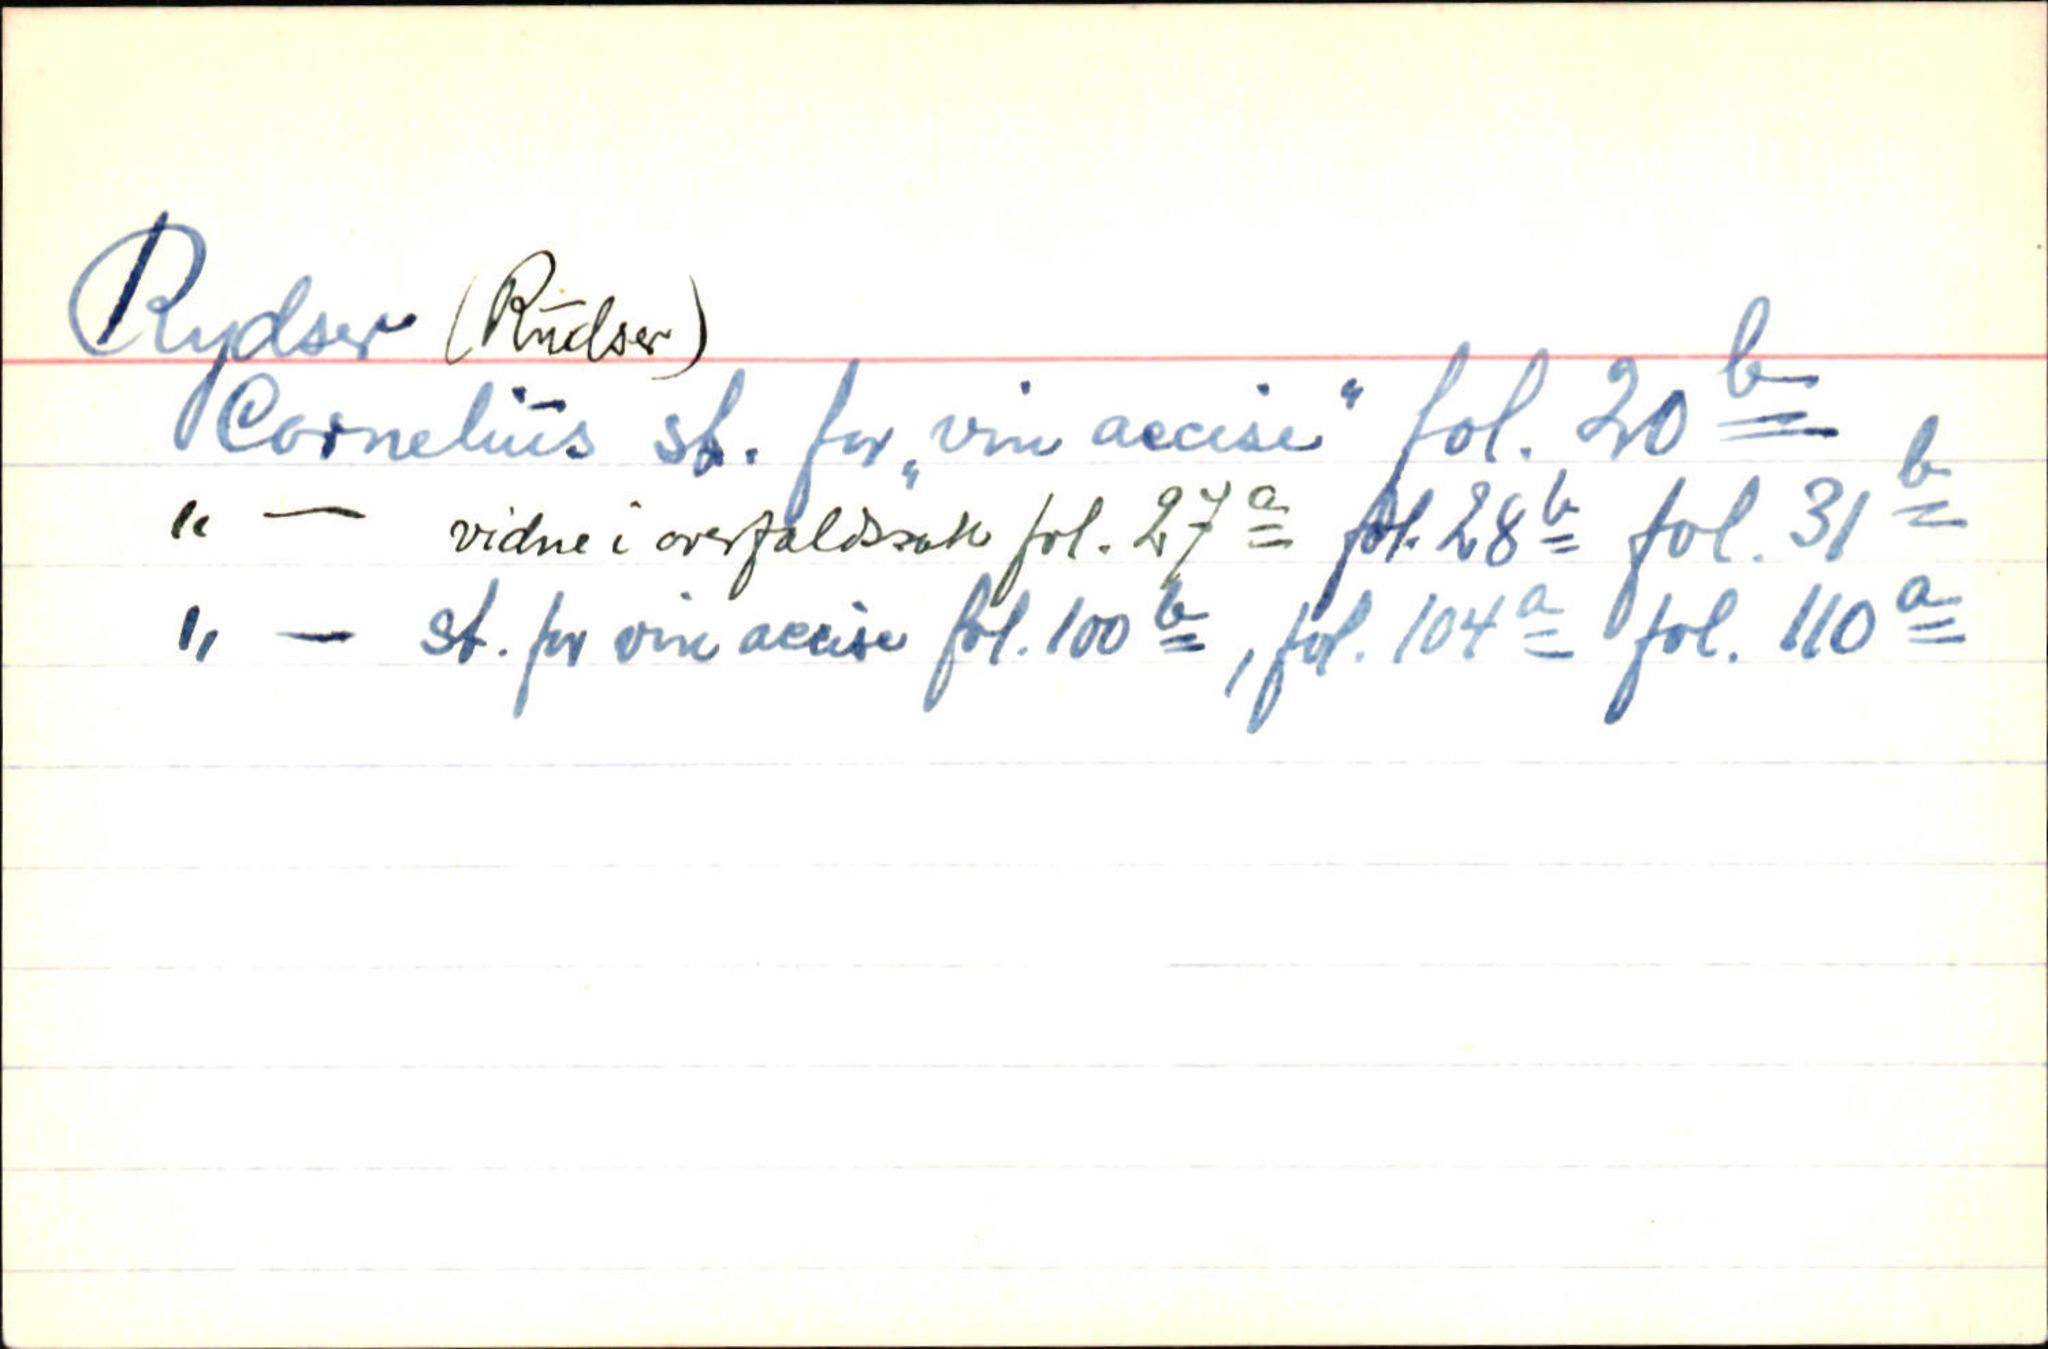 Rydser (Rudser)
Cornelius st. for „vin accise“ fol. 20 b
" — vidne i overfaldssak fol. 27 a fol. 28 b fol. 31 b
" — st. for vin accise fol. 100 b, fol. 104 a fol. 110 a